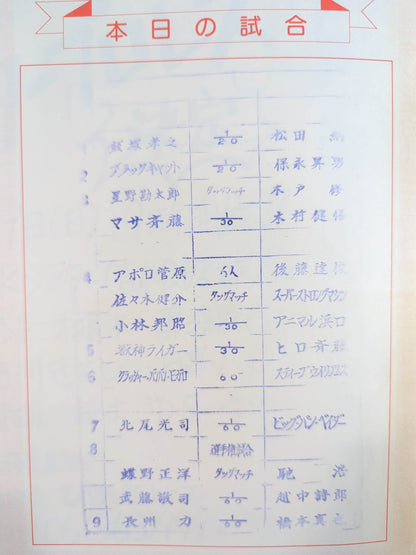 本日の試合
1 飯塚孝之 1/20 松田納
2 ブラックキャット 1/20 保永昇男
3 星野勘太郎 タッグマッチ 木戸修
マサ斉藤 1/30 木村健悟
4 アポロ菅原 6人 後藤達俊
佐々木健介 タッグマッチ スーパーストロングマシン
小林邦昭 1/30 アニマル浜口
5 獣神ライガー 1/30 ヒロ斉藤
6 クラッシャー・バンバン・ビガロ 60 スティーブ・ウイリアムス
7 北尾光司 1/60 ビッグ・バン・ベイダー
8 選手権試合
蝶野正洋 タッグマッチ 馳浩
武藤敬司 1/60 越中詩郎
9 長州力 1/60 橋本真也